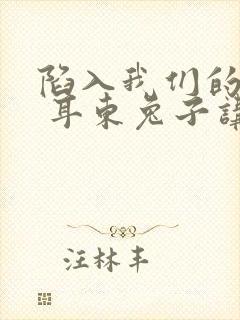 陷入我们的
耳东兔子讲
汪林丰